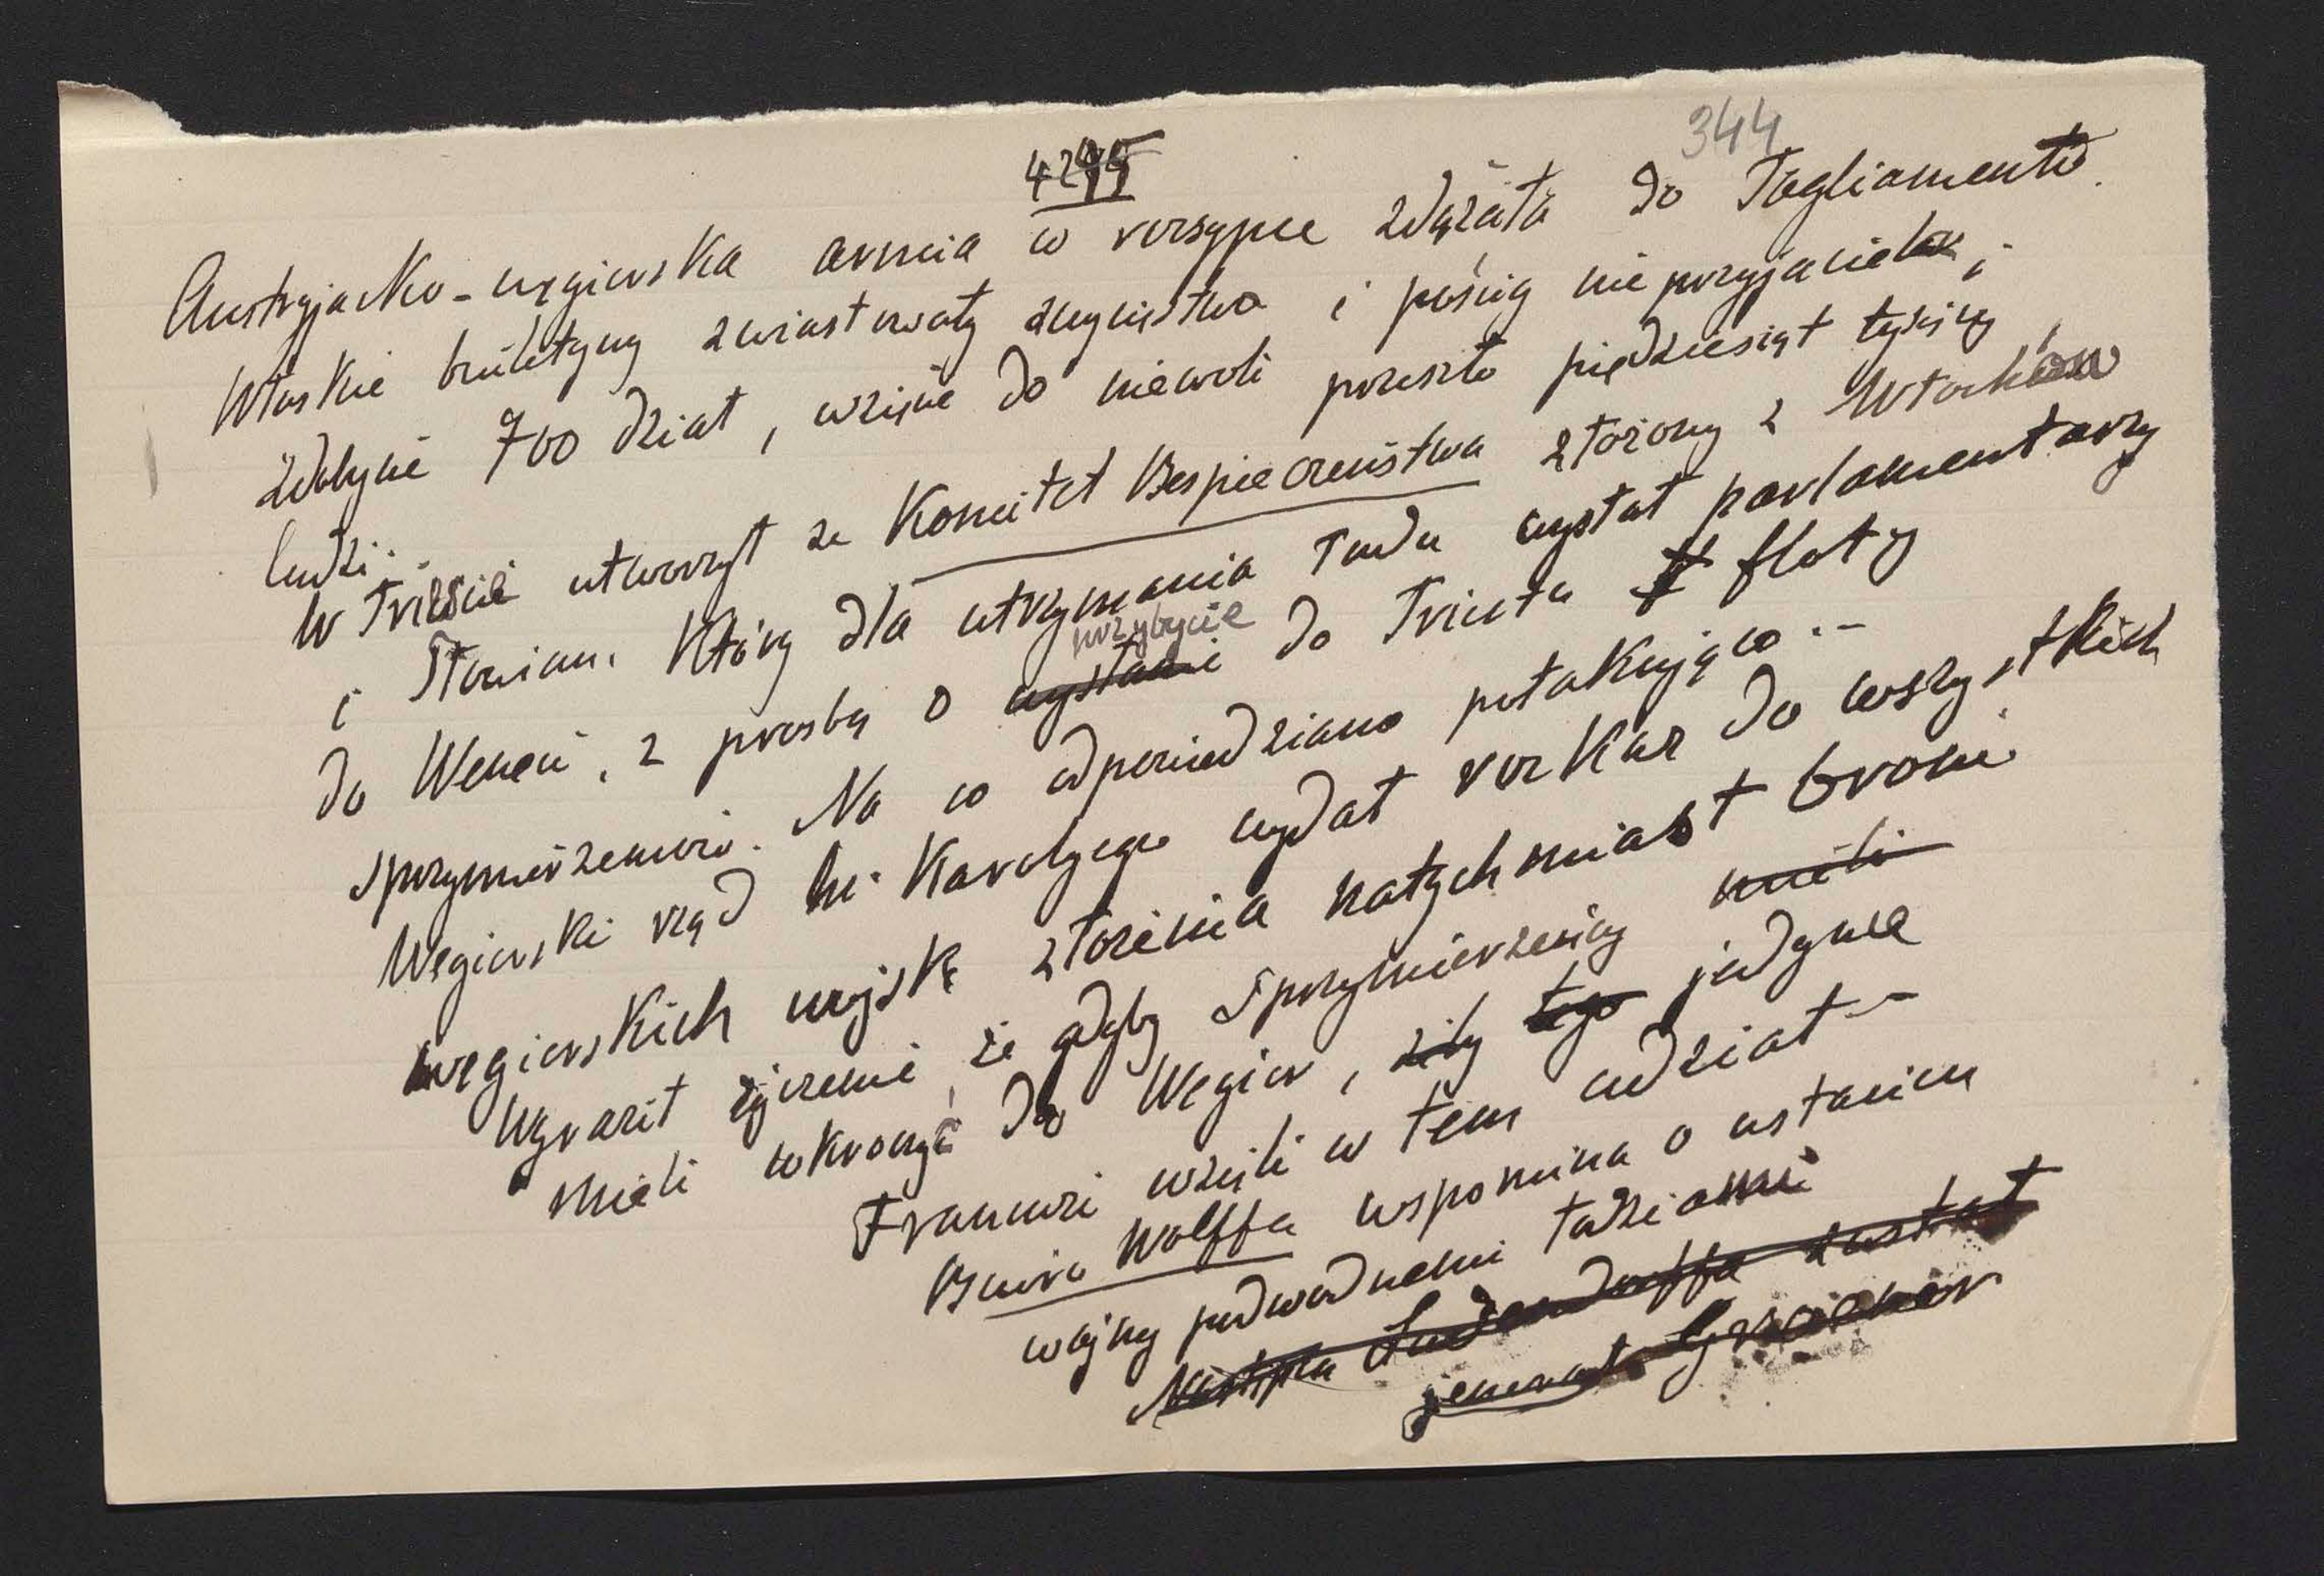 344
Austryjacko-węgierska armia w rozsypce zdążała do Tagliamento.
Włoskie biuletyny zwiastowały zwycięstwo i pościg nieprzyjaciela,
zdobycie 700 dział, wzięcie do niewoli przeszło piędziesiąt tysięcy
ludzi.
W Trieście utworzył se Komitet Bespieczeństwa złożony z Włochów
i Słowian. Który dla utrzymania ładu wysłał parlamentarzy
przybycie
do Wenecii, z prosbą o wysłanie do Triestu floty
sprzymierzeńców. Na co odpowiedziano potakująco.-
Wegierski rząd hr. Karolyego wydał rozkaz do wszystkich
wegierskich wojsk złożenia natychmiast broni
Wyraził życzenie, że gdyby sprzymierzency mieli
mieli wkroczyć do Wegier, żeby tego jedynie
Francuzi wzięli w tem udział-
Biuro Wolffa wspomina o ustaniu
wojny podwodnemi łodziami
Następcą Ludendorffa został
jenerał Groener